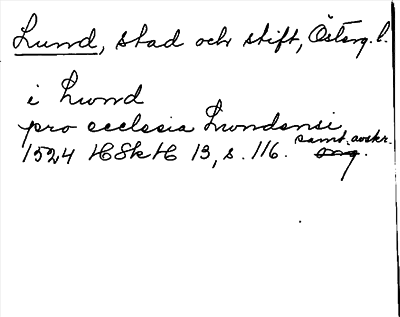 Lund, stad och stift, Österg. l.
i Lund
pro ecclesia Lundensi
samt. avskr.
1524 HSkH 13, s. 116. orig.